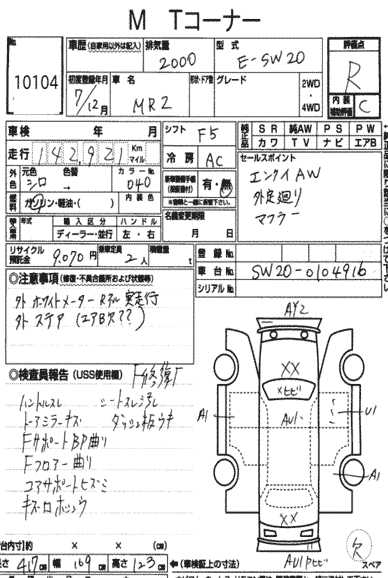 M Tコーナー
No.
10104
車歴（自家用以外は記入） 排気量 2000 型式 E-SW20
評価点 R
内装補助評価 C
初度登録年月 7/12月 車名 MR2 形状・ドア数 グレード 2WD・4WD
車検 年 月 シフト F5
走行 142,921 Km マイル 冷房 AC
純正品 SR 純AW PS PW
カワ TV ナビ エアB
外色 元色 シロ → 色替 カラーNo. 040
有・無
セールスポイント
エンケイAW
外定廻り
マフラー
燃料 ガソリン・軽油・( ) 内装色
名義変更期限 月 日
輸入車 年式 輸入区分 ハンドル
ディーラー・並行 左・右
リサイクル預託金 9,070円 乗車定員 2人 積載量 t
登録No.
車台No. SW20-0104916
シリアルNo.
◎注意事項（修復・不具合箇所および状態等）
外 ホワイトメーター Rデル 実走行
外 ステア（エアB欠??）
◎検査員報告（USS使用欄） F修復F
ハンドルスレ シートスレコゲレ
ドアミラーキズ ダッシュ板ウキ
FサポートBP曲り
Fフロアー曲り
コアサポートヒズミ
キズ・凹 ホシュウ
AY2
XX
×ヒビ
AU1
A1
U1
A1
XX
AU1Pヒビ
欠
スペア
台内寸) × × (㎝)
長さ 417㎝ 幅 169㎝ 高さ 123㎝ ←（車検証上の寸法）